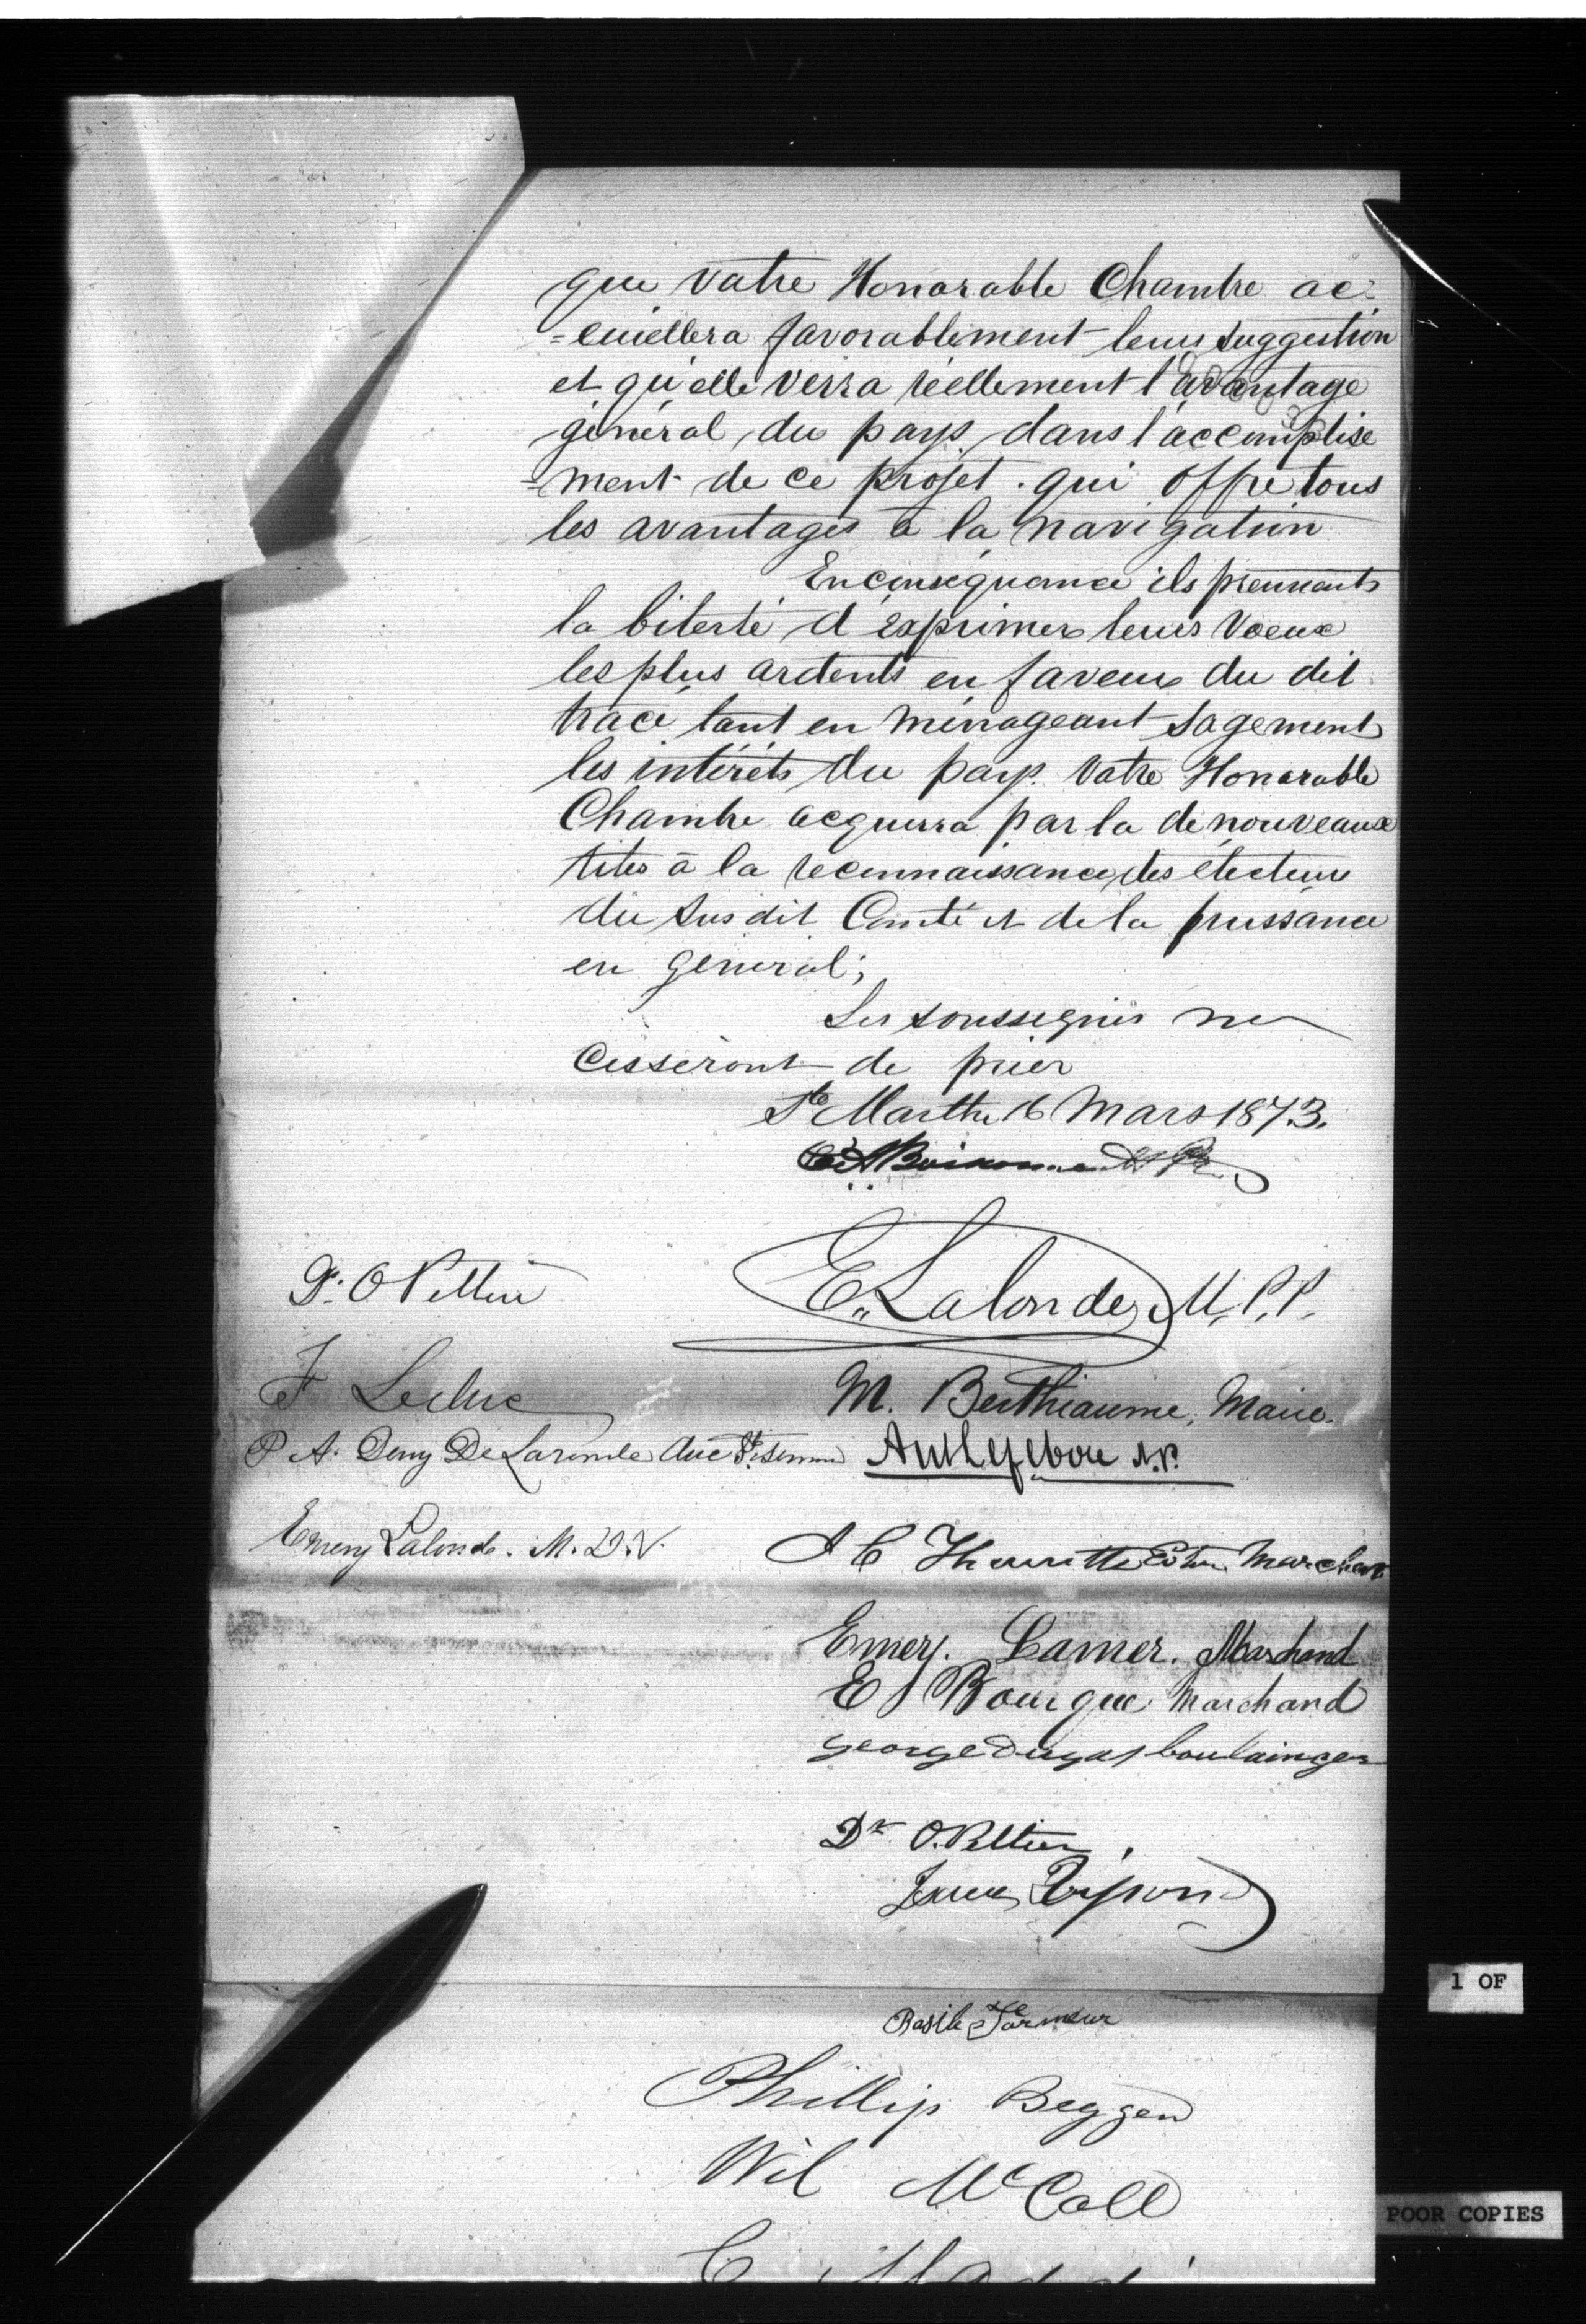 que votre Honorable Chambre ac-
=cuiellera favorablement leurs suggestion
et qu'elle verra réellement l'avantage
général du pays dans l'accomplise
=ment de ce projet. qui offre tous
les avantages à la navigation
En conséquance ils prennents
la liberté d'éxprimer leurs voeux
les plus ardents en faveur du dit
tracé, tant en ménageant sagement
les intérêts du pays. Votre Honorable
Chambre acquerra par la de nouveaux
titres à la reconnaissance des électeurs
du susdit Comté et de la puissance
en général;
Les soussignés ne
cesseront de prier
Ste Marthe 16 Mars 1873.
E. Lalonde, M.P.P.
Dr. O Peltier
F Leduc
M. Berthiaume, Maire.
P A. Deny De Laronde
Ant Lefebvre N.P.
Emery Lalonde. M.D.V.
Emery. Lamer. Marchand
E Bourque Marchand
george dugas boulainger
Dr O. Peltier,
Basile
Phillip Beggen
Wil McCall
1 OF
POOR COPIES